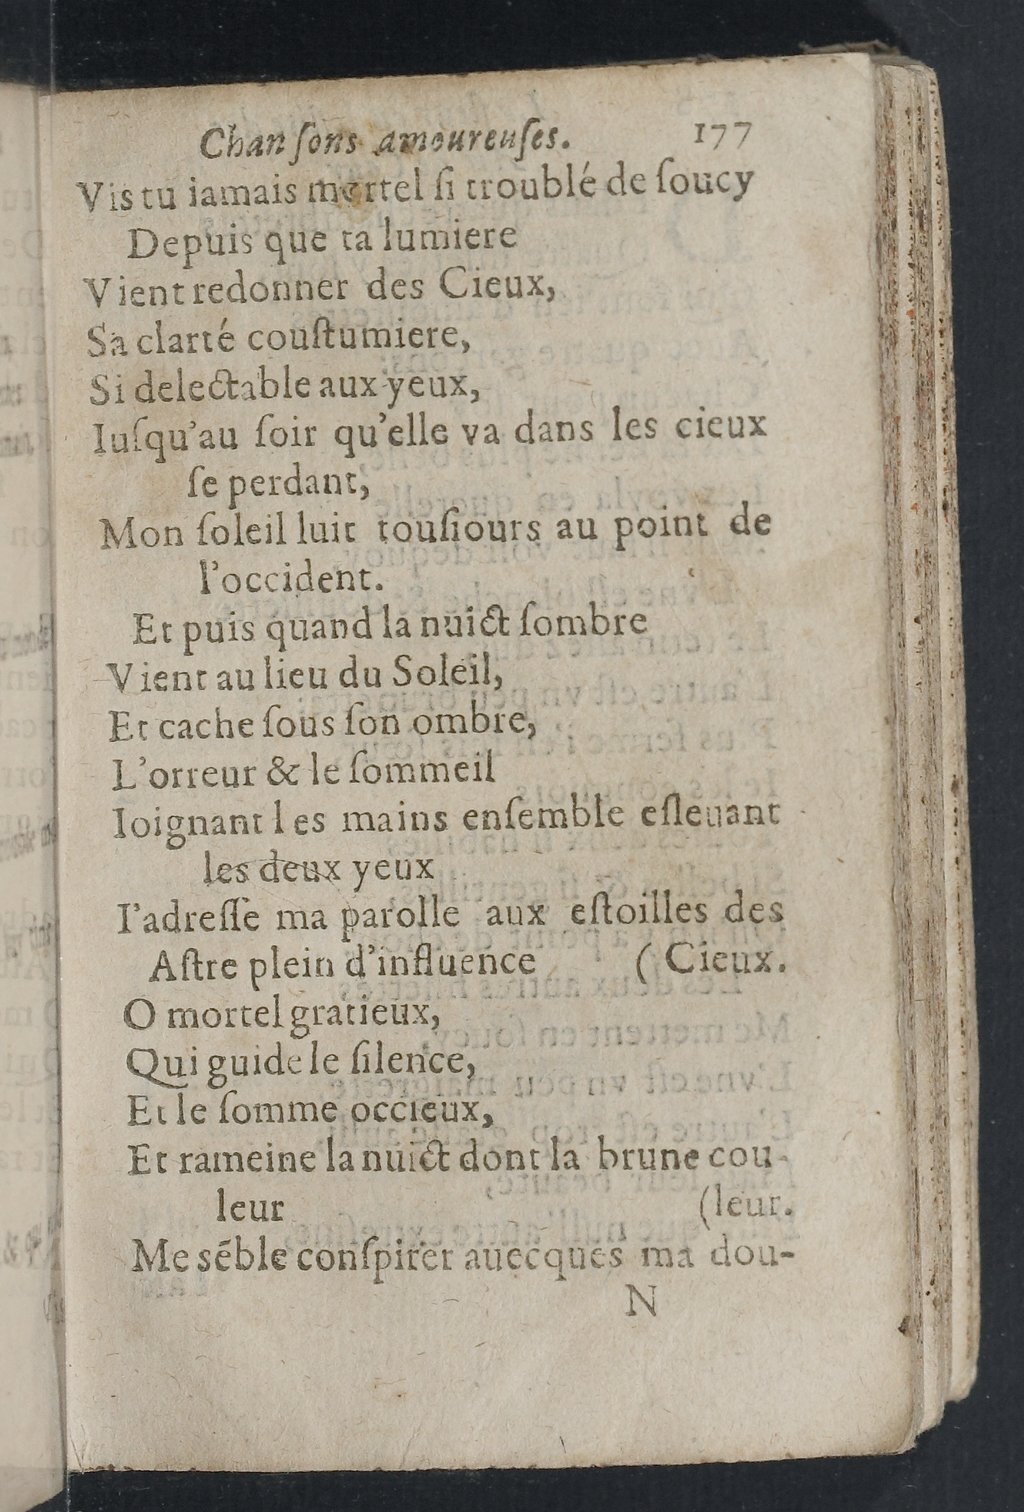 Chanſons amoureuſes. 177
Vis tu iamais mortel ſi troublé de ſoucy
Depuis que ta lumiere
Vient redonner des Cieux,
Sa clarté couſtumiere,
Si delectable aux yeux,
Iuſqu'au ſoir qu'elle va dans les cieux
ſe perdant,
Mon ſoleil luit touſiours au point de
l'occident.
Et puis quand la nuict ſombre
Vient au lieu du Soleil,
Et cache ſous ſon ombre,
L'orreur & le ſommeil
Ioignant les mains enſemble eſleuant
les deux yeux
I'adreſſe ma parolle aux eſtoilles des
Aſtre plein d'influence ( Cieux.
O mortel gratieux,
Qui guide le ſilence,
Et le ſomme occieux,
Et rameine la nuict dont la brune cou-
leur (leur.
Me sẽble conſpirer auecques ma dou-
N